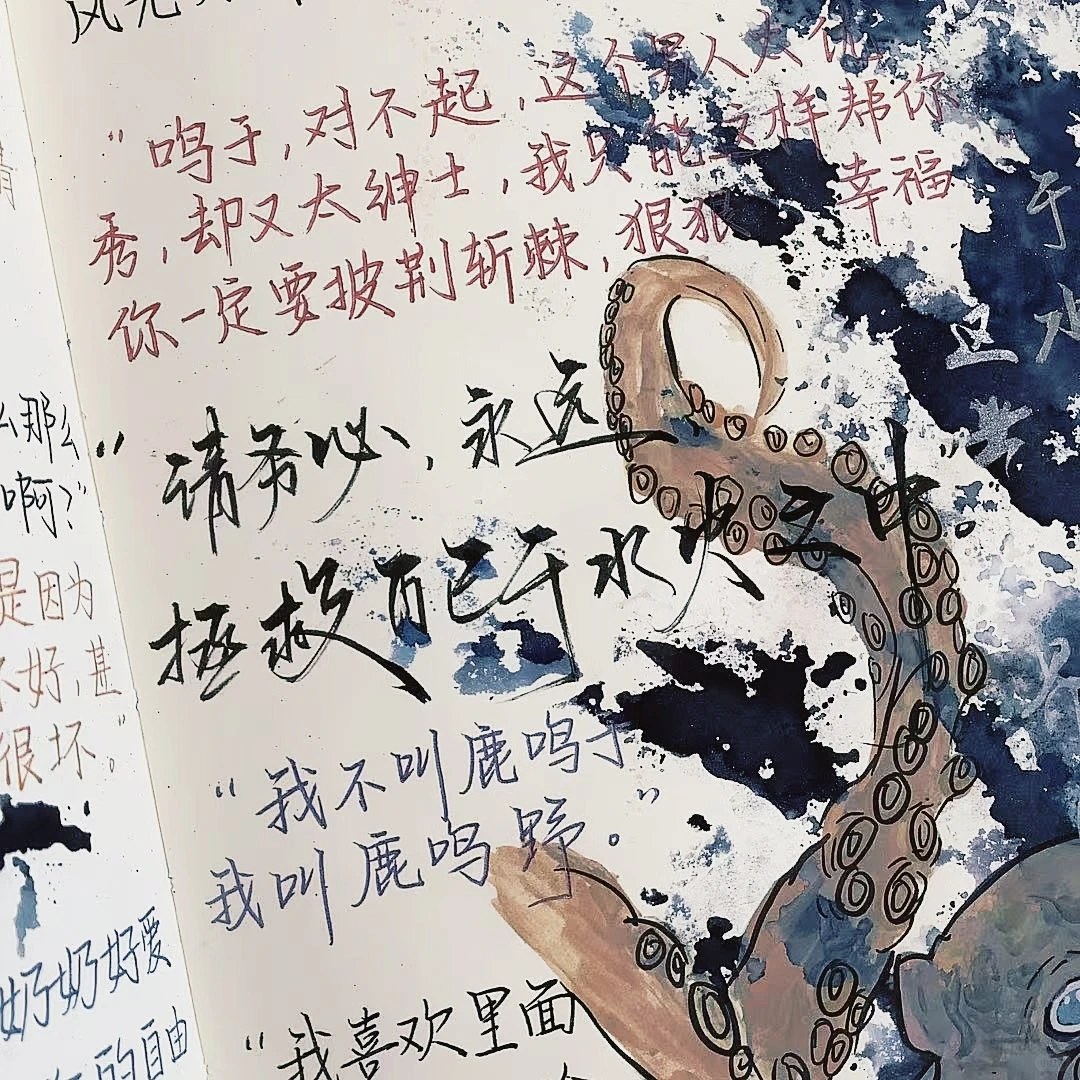 "鸣于,对不起,这个男人太优
秀,却又太绅士,我只能这样帮你
你一定要披荆斩棘,狠狠 幸福
"请务必,永远
拯救自己于水火之中"。
"我不叫鹿鸣于
我叫鹿鸣野。"
"我喜欢里面
么那么
啊?"
是因为
不好,甚
很坏"。
奶奶好爱
的自由
于
水
这